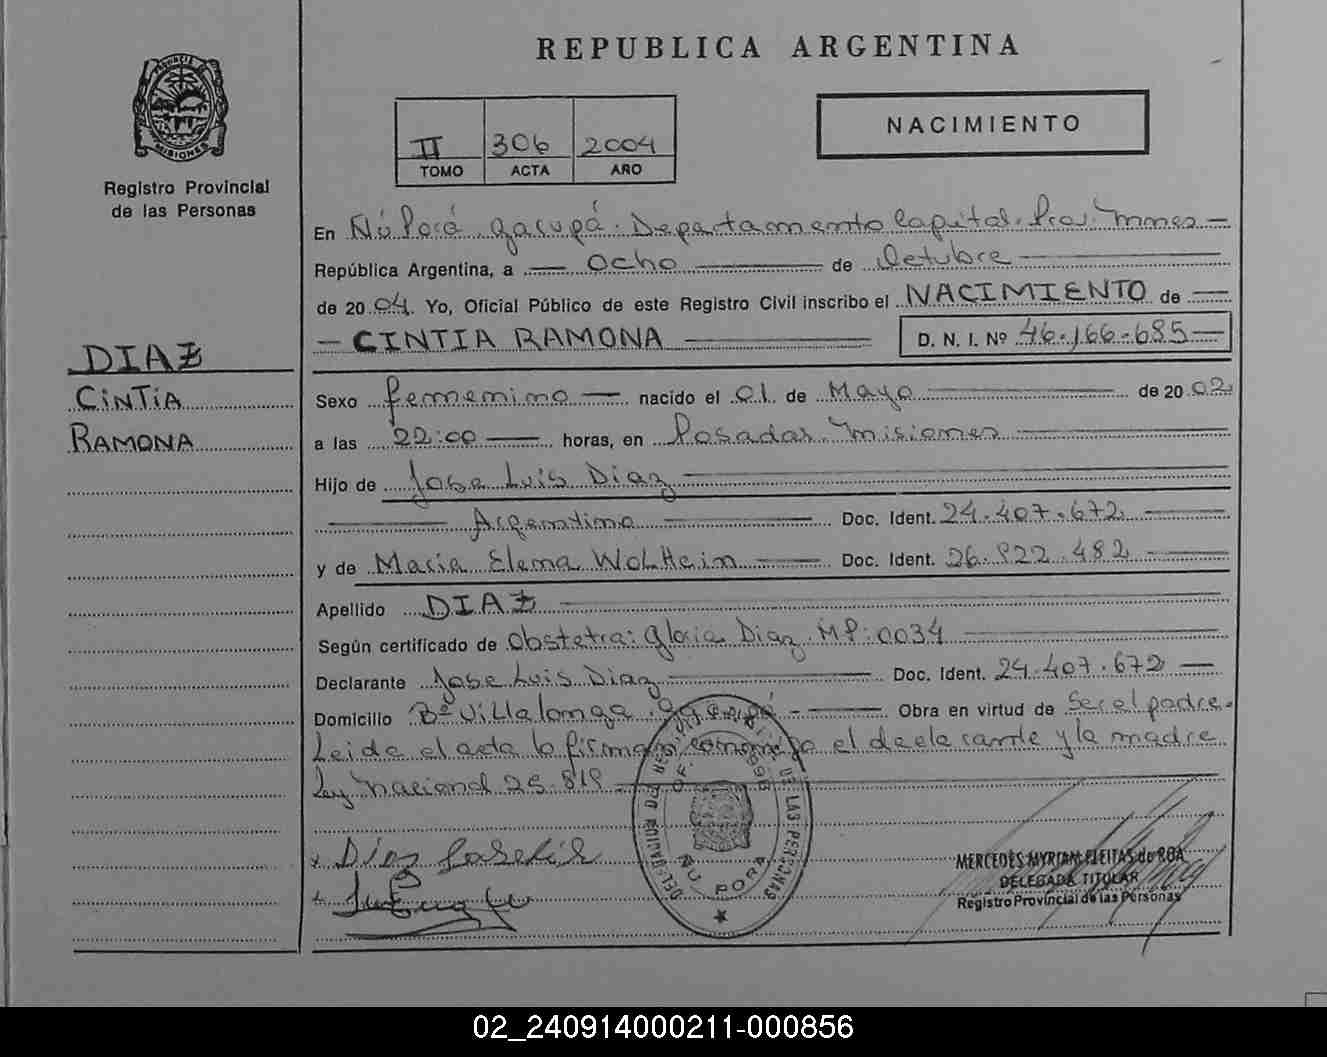 REPUBLICA ARGENTINA
PROVINCIA DE MISIONES
Registro Provincial
de las Personas
II 306 2004
TOMO ACTA AÑO
NACIMIENTO
En Ñú Porá. Garupá. Departamento Capital. Prov. Mnes
República Argentina, a Ocho de Octubre
de 2004. Yo, Oficial Público de este Registro Civil inscribo el NACIMIENTO de
CINTIA RAMONA D. N. I. Nº 46.166.685
DIAZ
CINTIA
RAMONA
Sexo femenino nacido el 01 de Mayo de 2002
a las 22:00 horas, en Posadas. Misiones
Hijo de Jose Luis Diaz
Argentino Doc. Ident. 24.407.672
y de Maria Elena WolHein Doc. Ident. 26.822.482
Apellido DIAZ
Según certificado de Obstetra: Gloria Diaz. MP: 0034
Declarante Jose Luis Diaz Doc. Ident. 24.407.672
Domicilio Bº Villalonga. Garupá Obra en virtud de Ser el padre.
Leida el acta la firman conmigo el declarante y la madre
Ley Nacional 25.819
x Diaz Jose Luis
x
ÑU PORA
DE LAS PERSONAS
MERCEDES MYRIAM FLEITAS de ROA
DELEGADA TITULAR
Registro Provincial de las Personas
02_240914000211-000856